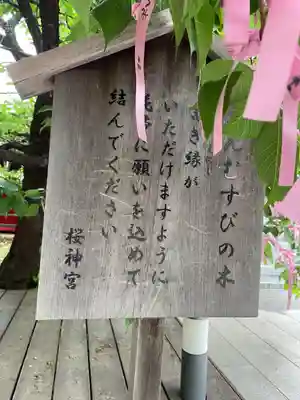 んむすびの木
き縁が
いただけますように
に願いを込めて
結んでください
桜神宮